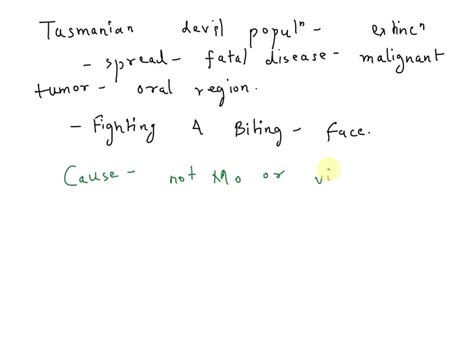 Tasmanian devil populⁿ - extincⁿ
- spread - fatal disease - malignant
tumor - oral region.
- Fighting & Biting - face.
Cause - not Mo or vi